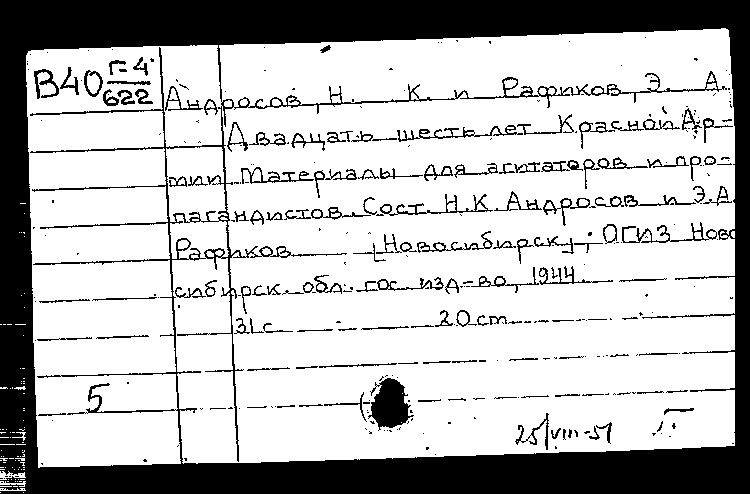 В40 Г-4/622
Андросов, Н. К. и Рафиков, Э. А.
Двадцать шесть лет Красной Ар-
мии Материалы для агитаторов и про-
пагандистов. Сост. Н.К. Андросов и Э.А.
Рафиков [Новосибирск]; ОГИЗ Ново
сибирск. обл. гос. изд-во, 1944.
31 с. 20 cm.
5
25/VIII-51 Г.